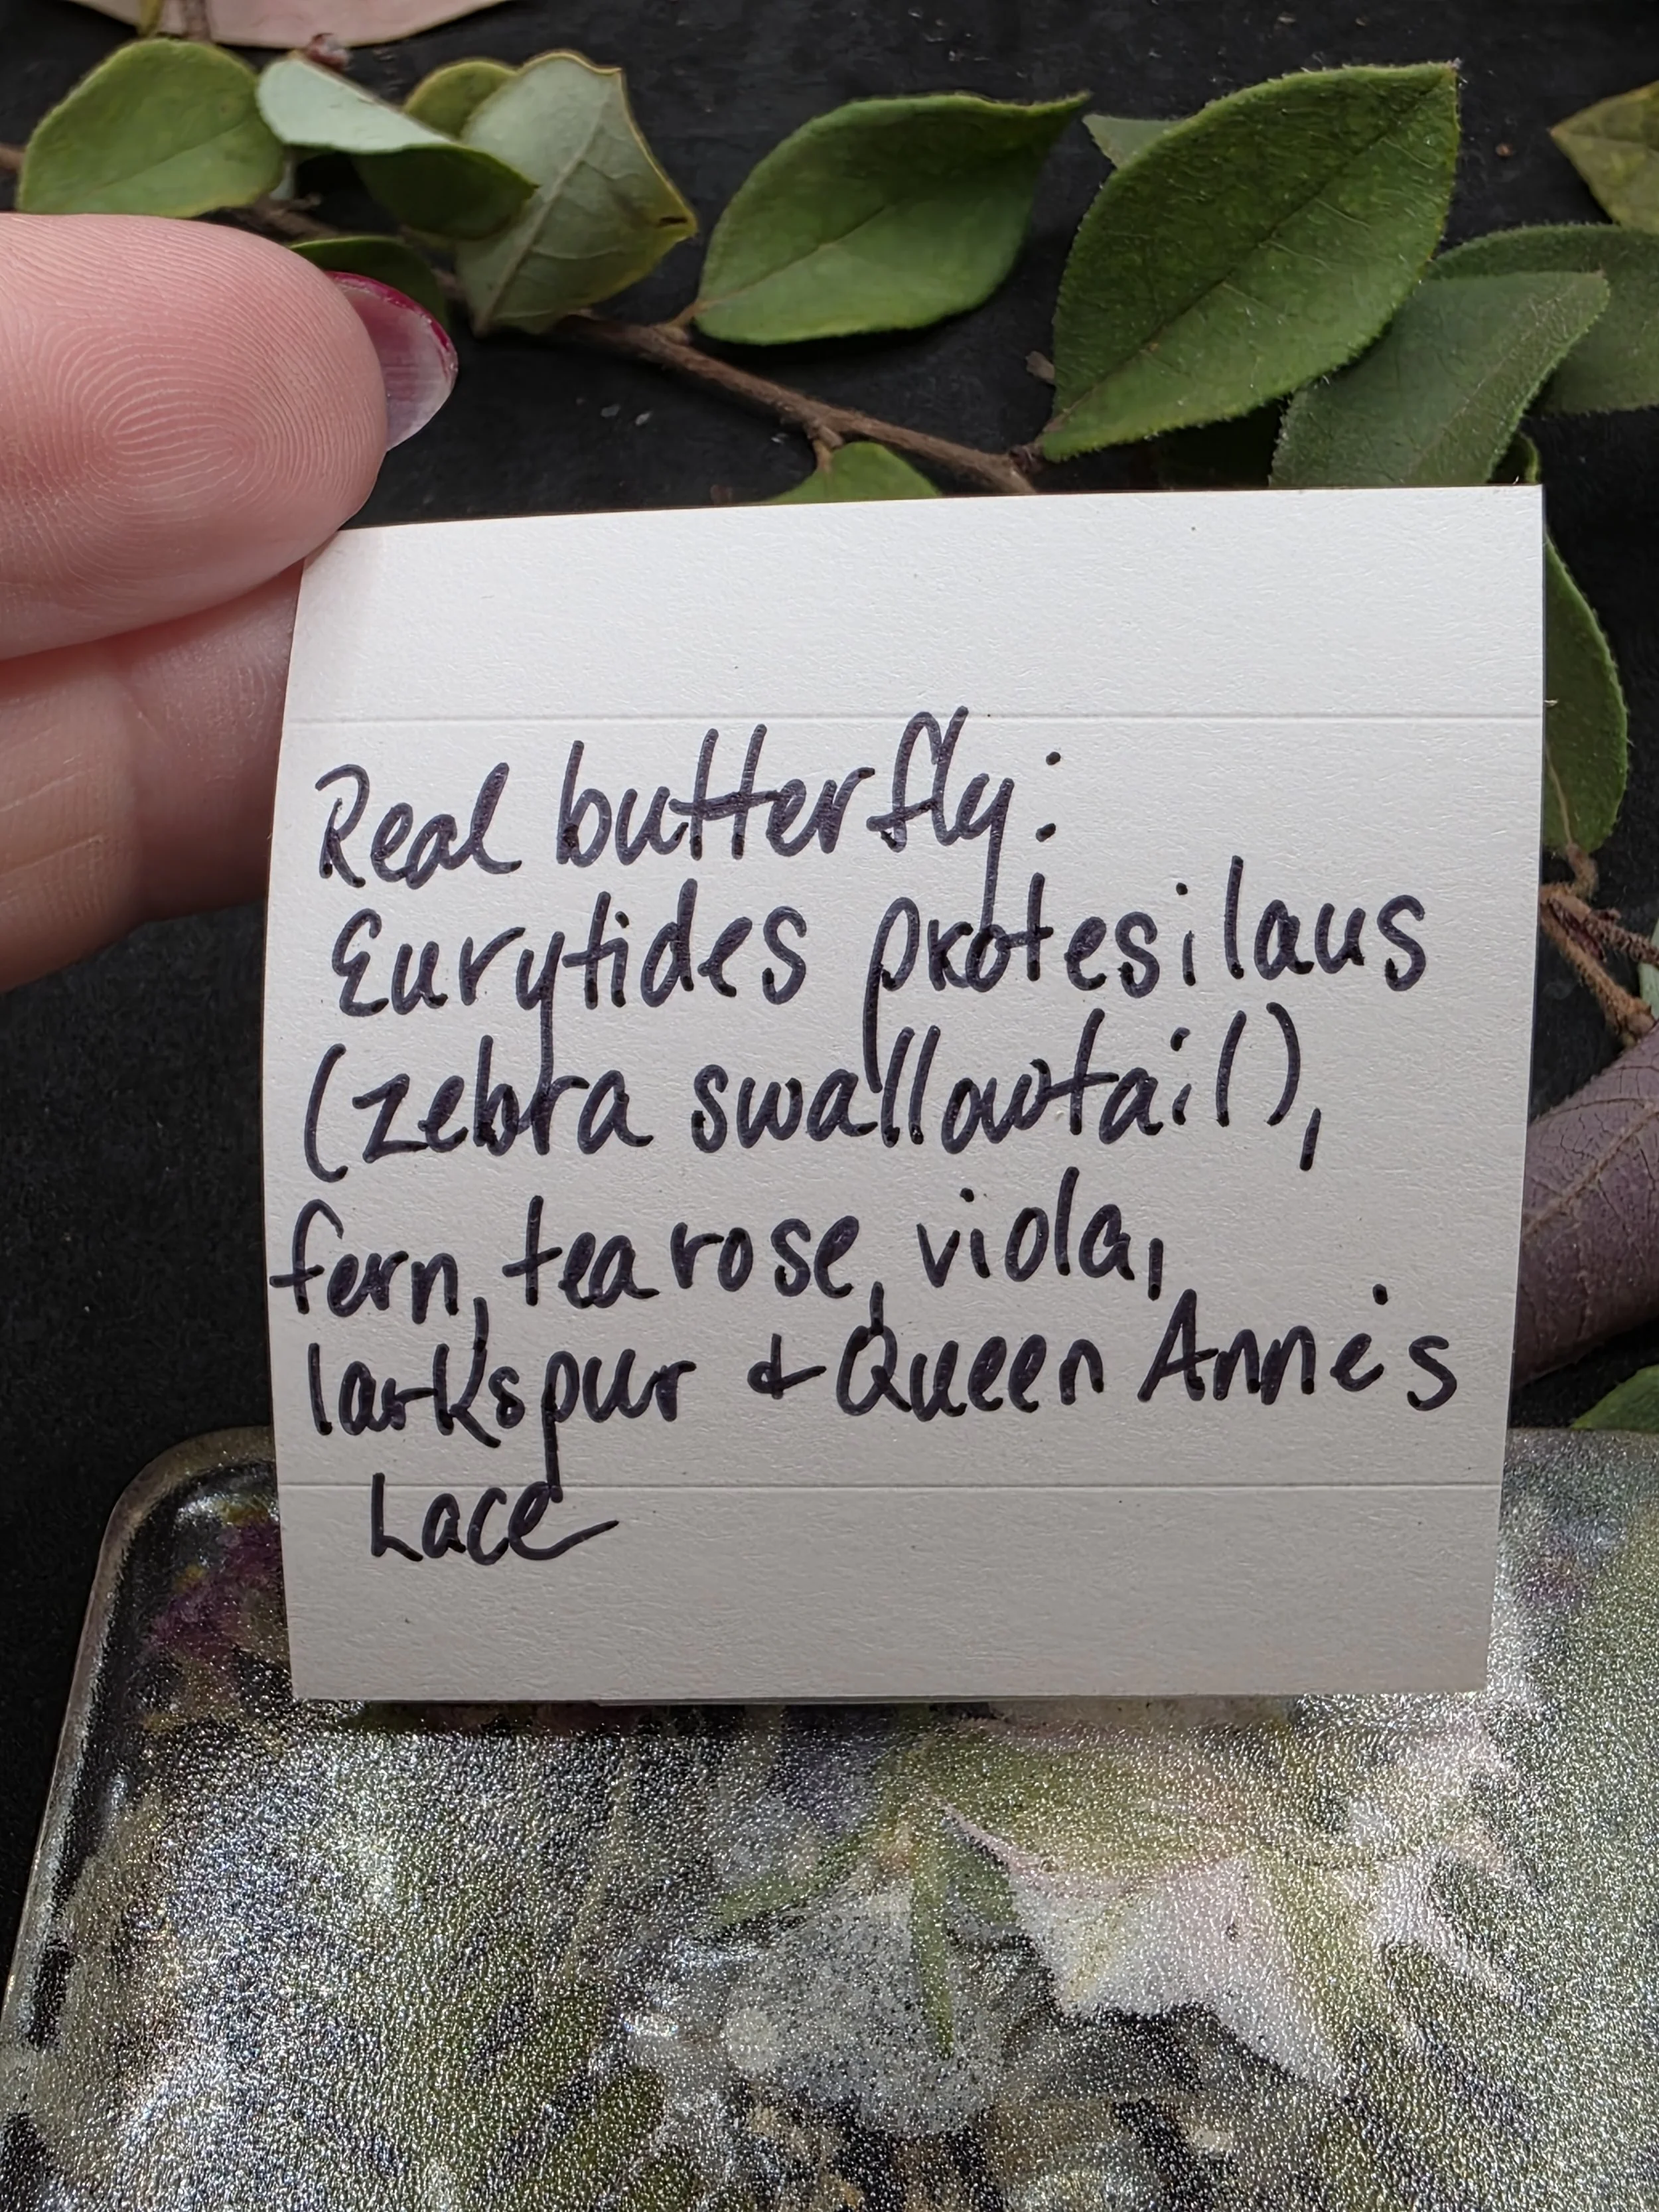 Real butterfly:
Eurytides protesilaus
(zebra swallowtail),
fern, tea rose, viola,
larkspur & Queen Anne's
Lace